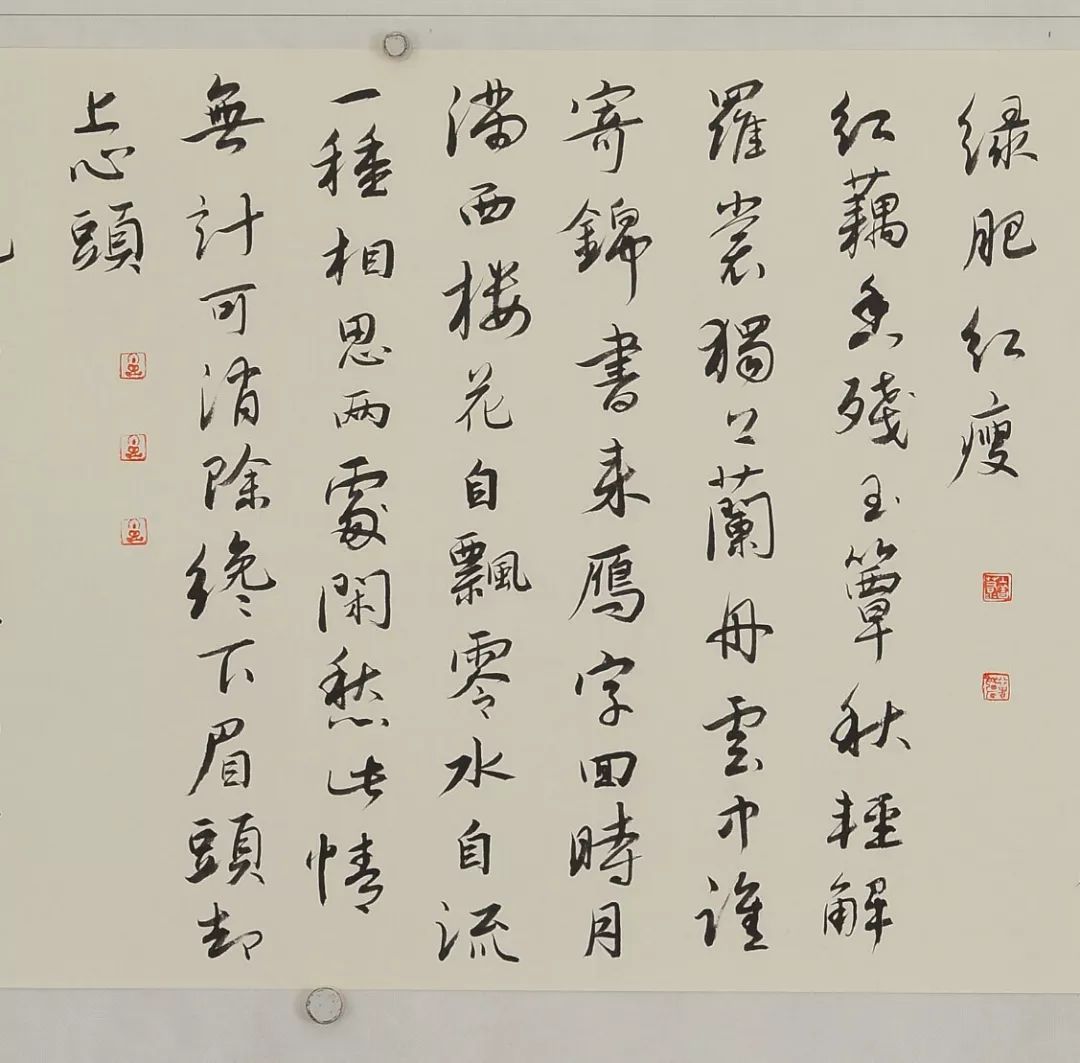 绿肥红瘦
红藕香残玉簟秋輕解
羅裳獨上蘭舟雲中誰
寄錦書来鴈字回時月
满西楼花自飄零水自流
一種相思两處閑愁此情
無計可消除纔下眉頭却
上心頭